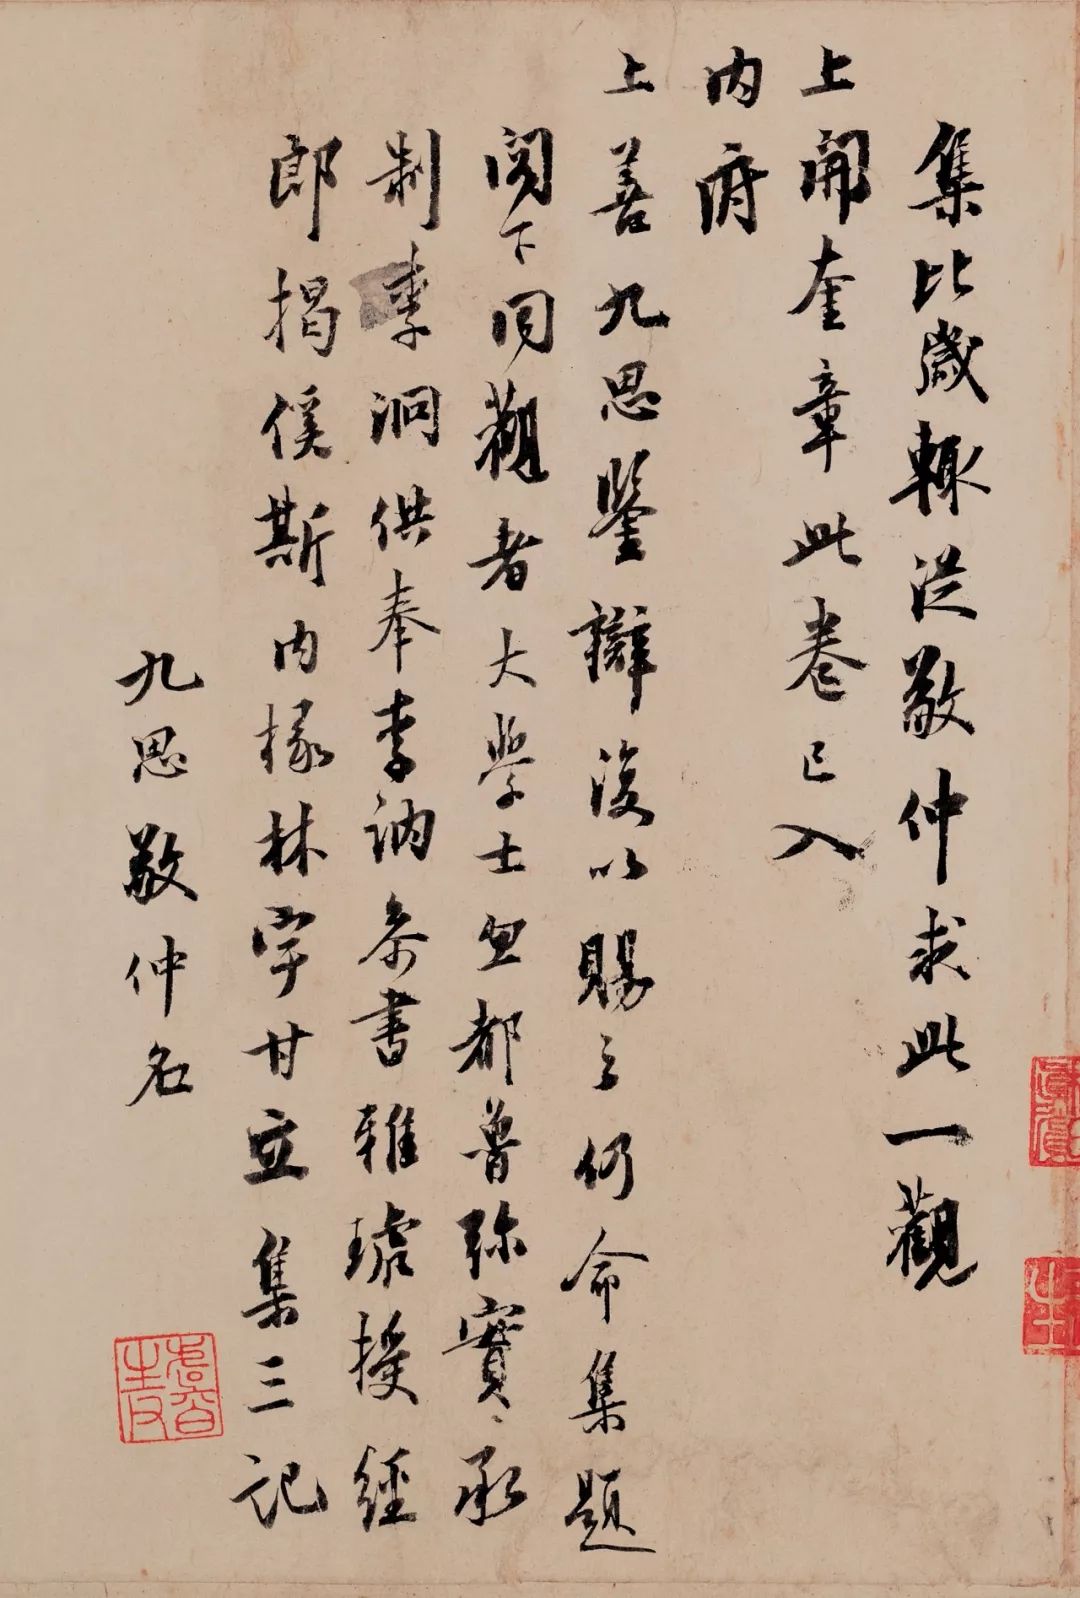 集比歲輒從敬仲求此一觀
上開奎章此卷已入
内府
上善九思鑒辯復以賜之仍命集題
閣下同觀者大學士忽都魯弥實、承
制李泂供奉李訥參書雅琥授經
郎揭傒斯内掾林宇甘立集三記
九思敬仲名